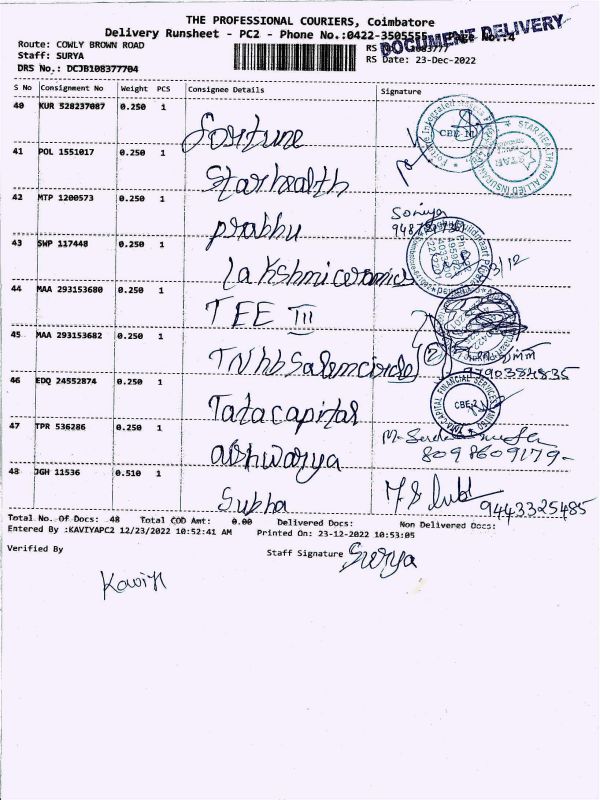 THE PROFESSIONAL COURIERS, Coimbatore
Delivery Runsheet - PC2 - Phone No.:0422-3505555 No.:4
DOCUMENT DELIVERY
Route: COWLY BROWN ROAD
Staff: SURYA RS Date: 23-Dec-2022
DRS No.: DCJB108377704
S No Consignment No Weight PCS Consignee Details Signature
40 KUR 528237087 0.250 1 fortune CBE-II
41 POL 1551017 0.250 1 Star health STAR HEALTH AND ALLIED INSURANCE STAR
42 MTP 1200573 0.250 1 prabhu
43 SWP 117448 0.250 1 lakshmi ceramics
44 MAA 293153680 0.250 1 TEE III
45 MAA 293153682 0.250 1 TNhb Salem circle 9790384835
46 EDQ 24552874 0.250 1 Tata capital TATACAPITAL FINANCIAL SERVICES LIMITED CBE-2
47 TPR 536286 0.250 1 aishwarya 8098609179
48 JGH 11536 0.510 1 Subha 9443325485
Total No. Of Docs: 48 Total COD Amt: 0.00 Delivered Docs: Non Delivered Docs:
Entered By :KAVIYAPC2 12/23/2022 10:52:41 AM Printed On: 23-12-2022 10:53:05
Verified By Staff Signature Surya